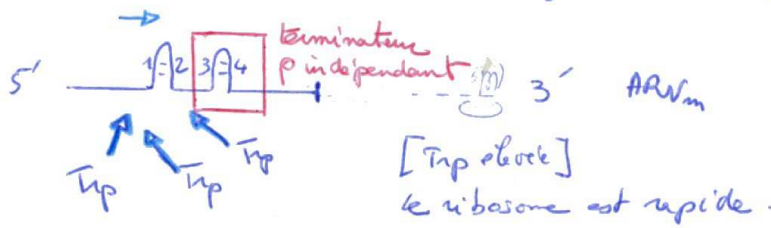 terminateur
ρ indépendant
5' 1 2 3 4 3' ARNm
Trp Trp Trp
[Trp élevée]
le ribosome est rapide.